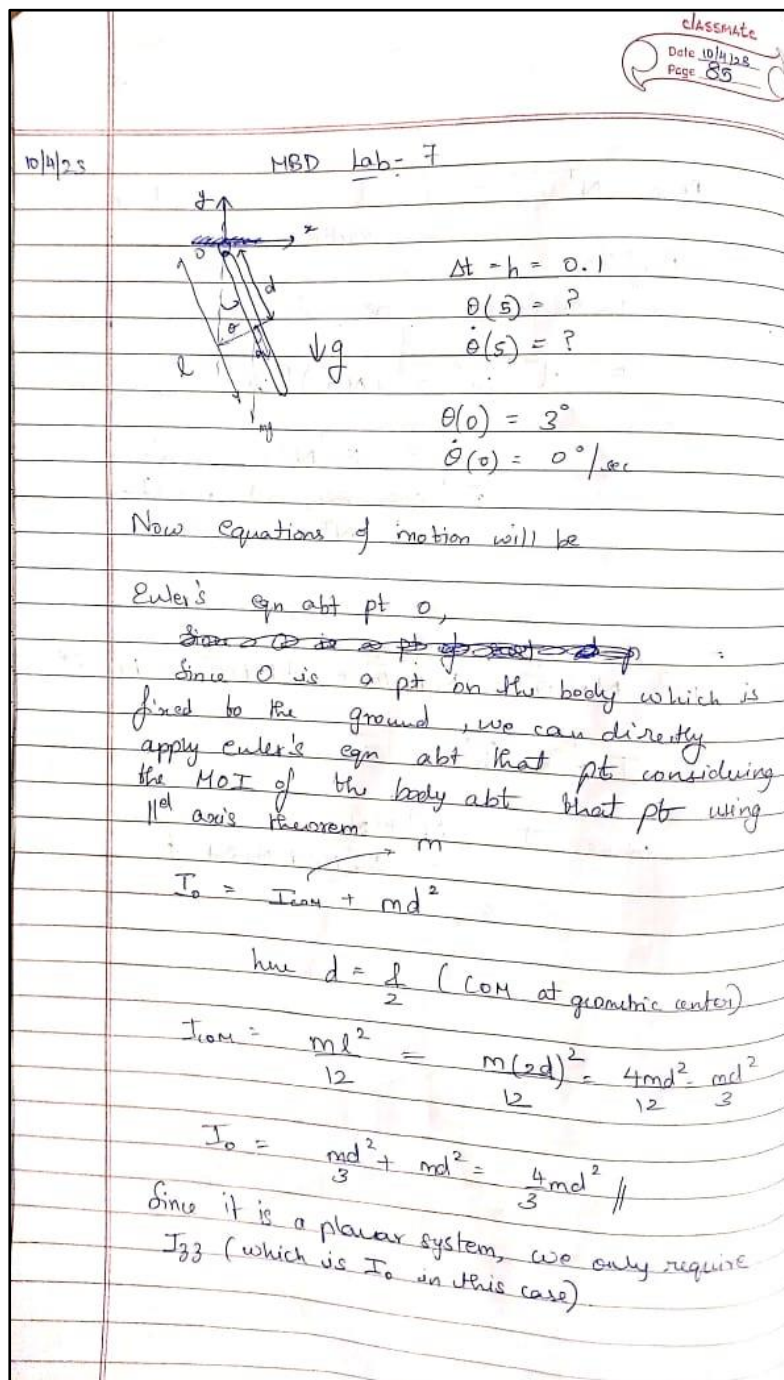 classmate
Date 10/4/23
Page 85
10/4/23
MBD Lab - 7
y
x
O
d
θ
l
↓g
mg
Δt = h = 0.1
θ(5) = ?
θ̇(5) = ?
θ(0) = 3°
θ̇(0) = 0°/sec
Now equations of motion will be
Euler's eqn abt pt O,
Since O is a pt on the body which is
fixed to the ground, we can directly
apply euler's eqn abt that pt considering
the MOI of the body abt that pt using
||el axis theorem
m
I₀ = I_COM + md²
here d = l/2 (COM at geometric center)
I_COM = ml²/12 = m(2d)²/12 = 4md²/12 = md²/3
I₀ = md²/3 + md² = 4/3 md² //
Since it is a planar system, we only require
I33 (which is I₀ in this case)